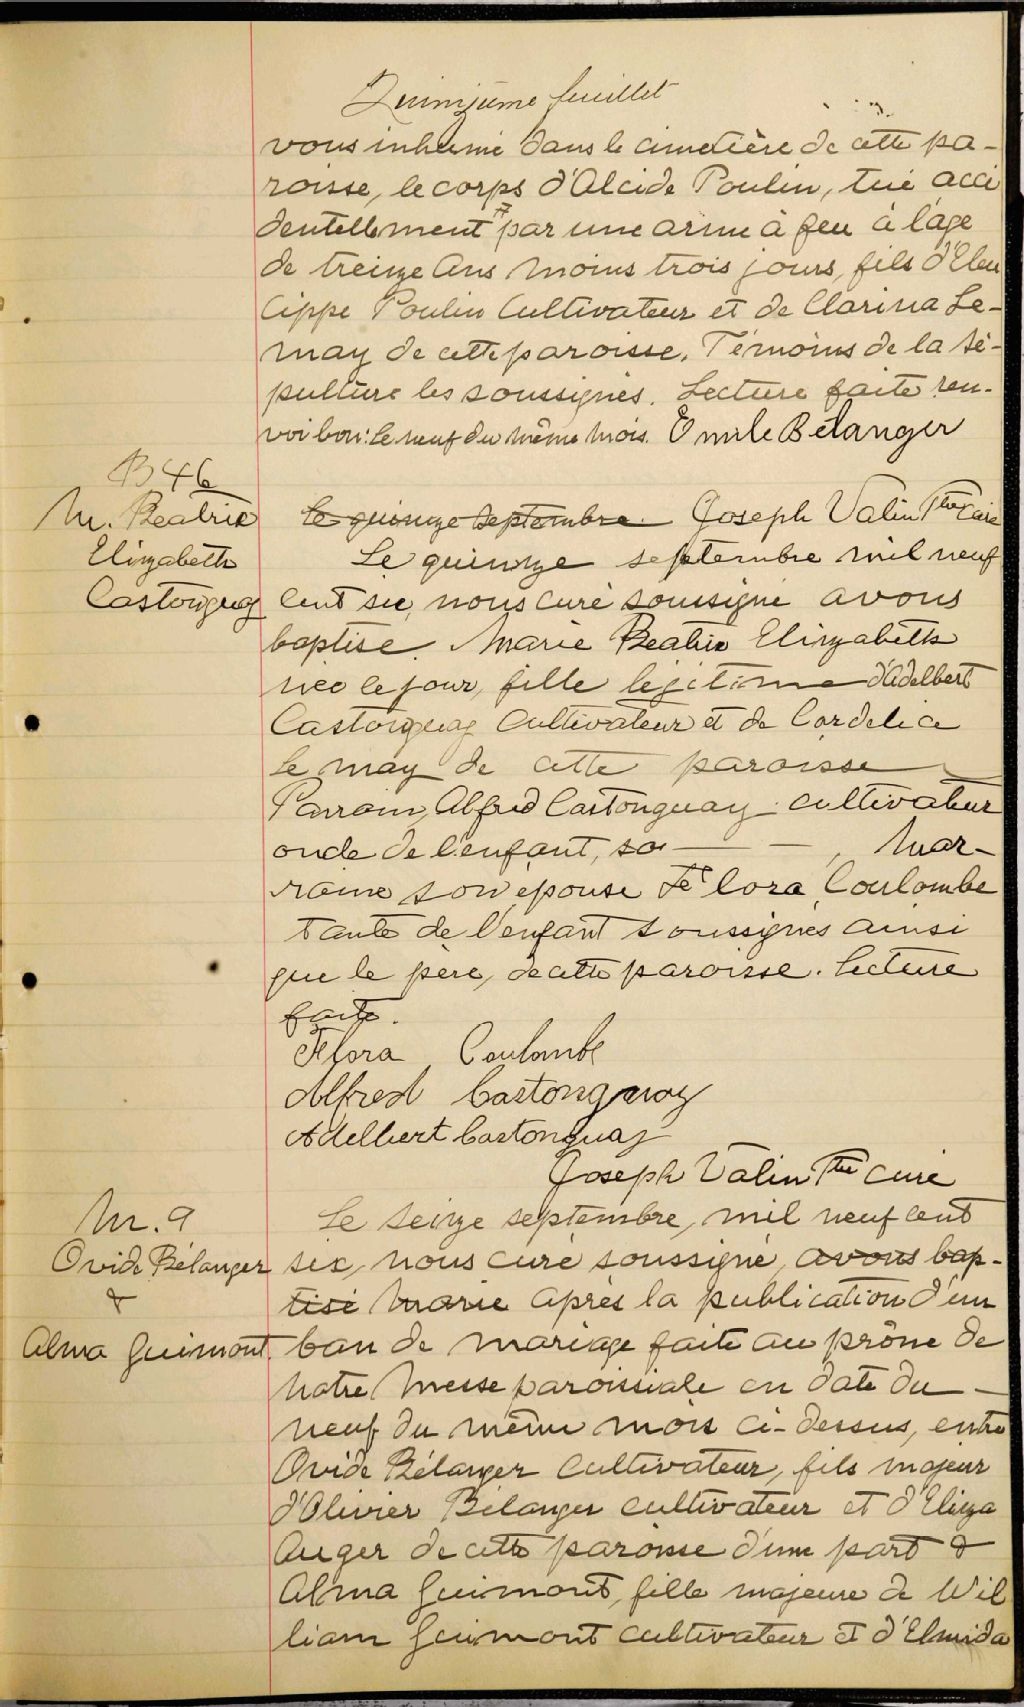 Quinzième feuillet
vous inhumé dans le cimetière de cette pa-
roisse, le corps d'Alcide Poulin, tué acci
dentellement # par une arme à feu à l'âge
de treize ans moins trois jours, fils d'Eleu
cippe Poulin Cultivateur et de Clarina Le-
may de cette paroisse. Témoins de la sé-
pulture les soussignés. Lecture faite ren-
voi bon: le neuf du même mois. Emile Bélanger
B 46
M. Beatrix
Elizabeth
Castonguay
le quinze septembre Joseph Valin Ptre Curé
Le quinze septembre mil neuf
cent six, nous curé soussigné avons
baptisé Marie Beatrix Elizabeth
née le jour, fille légitime d'Adelbert
Castonguay Cultivateur et de Cordelia
Le may de cette paroisse
Parrain, Alfred Castonguay cultivateur
oncle de l'enfant, sa — —, Mar-
raine son épouse Flora Coulombe
tante de l'enfant soussignés ainsi
que le père, de cette paroisse. Lecture
faite.
Flora Coulombe
Alfred Castonguay
Adelbert Castonguay
Joseph Valin Ptre curé
M. 9
Ovide Bélanger
&
Alma Guimont.
Le seize septembre, mil neuf cent
six, nous curé soussigné, avons bap-
tisé Marie après la publication d'un
ban de mariage faite au prône de
notre Messe paroissiale en date du —
neuf du même mois ci-dessus, entre
Ovide Bélanger cultivateur, fils majeur
d'Olivier Bélanger cultivateur et d'Eliza
Auger de cette paroisse d'une part &
Alma Guimont, fille majeure de Wil
liam Guimont cultivateur et d'Elmida